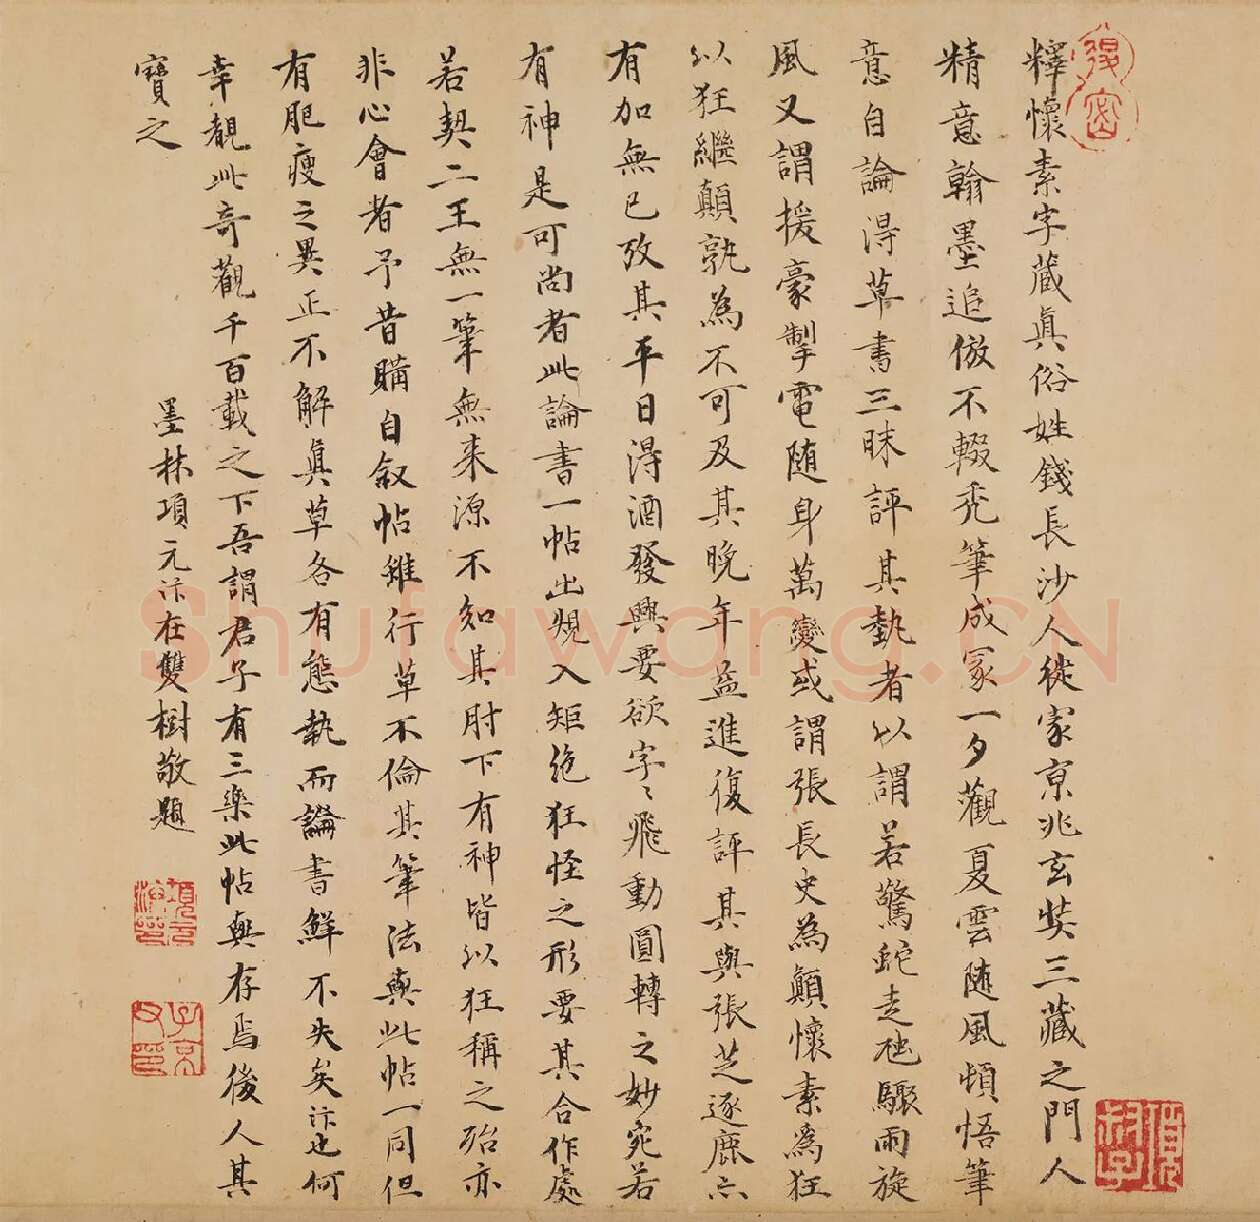 釋懷素字藏真俗姓錢長沙人徙家京兆玄奘三藏之門人
精意翰墨追倣不輟禿筆成冢一夕觀夏雲隨風頓悟筆
意自論得草書三昧評其執者以謂若驚蛇走虺驟雨旋
風又謂援豪掣電随身萬變或謂張長史為顛懷素為狂
以狂繼顛孰為不可及其晚年益進復評其與張芝逐鹿亦
有加無已攷其平日得酒發興要欲字〻飛動圓轉之妙宛若
有神是可尚者此論書一帖出規入矩絶狂怪之形要其合作處
若契二王無一筆無来源不知其肘下有神皆以狂稱之殆亦
非心會者予昔購自叙帖雖行草不倫其筆法與此帖一同但
有肥瘦之異正不解真草各有態執而論書鮮不失矣汴也何
幸覩此奇觀千百載之下吾謂君子有三樂此帖與存焉後人其
寶之
墨林項元汴在雙樹敬題
項元汴印
子京父印
Shufawang.CN